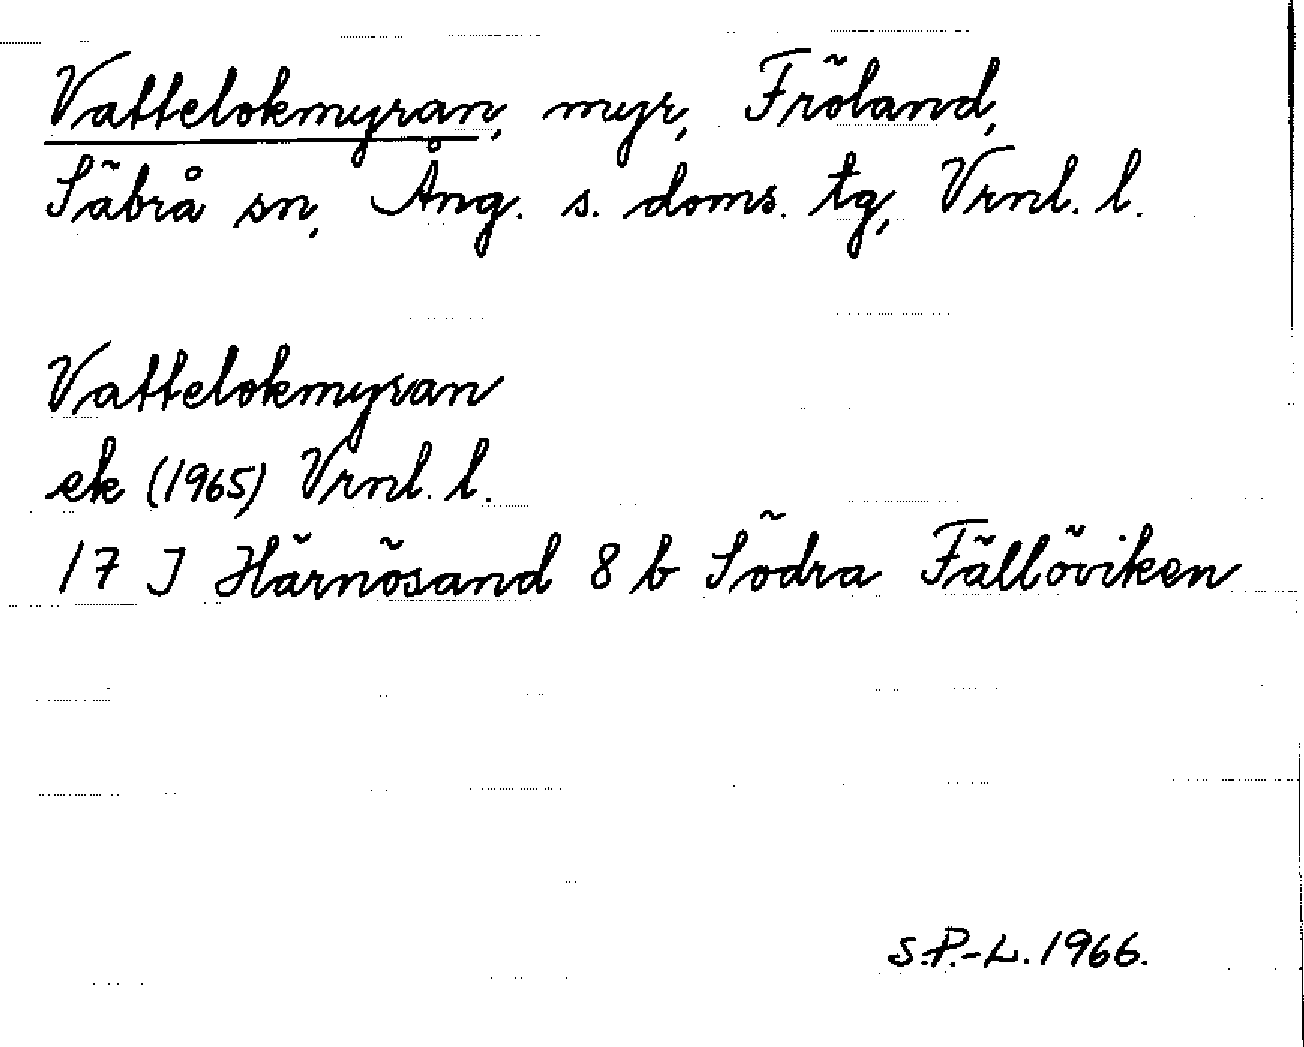 Vattelokmyran, myr, Fröland,
Säbrå sn, Ång. s. doms. tg, Vrnl. l.
Vattelokmyran
ek (1965) Vrnl. l.
17 J Härnösand 8 b Södra Fällöviken
S.P.-L. 1966.